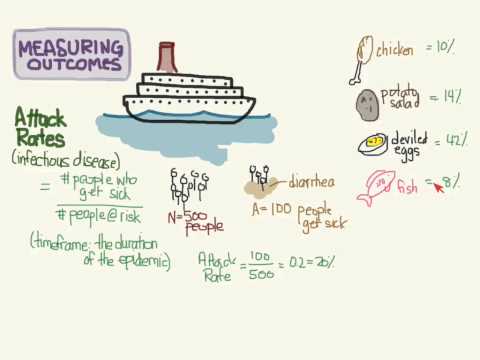 MEASURING
OUTCOMES
Attack
Rates
(infectious disease)
= # people who
get sick
# people @ risk
(timeframe: the duration
of the epidemic)
N=500
people
diarrhea
A = 100 people
get sick
Attack
Rate = 100/500 = 0.2 = 20%
chicken = 10%
potato
salad = 14%
deviled
eggs = 42%
fish = 8%